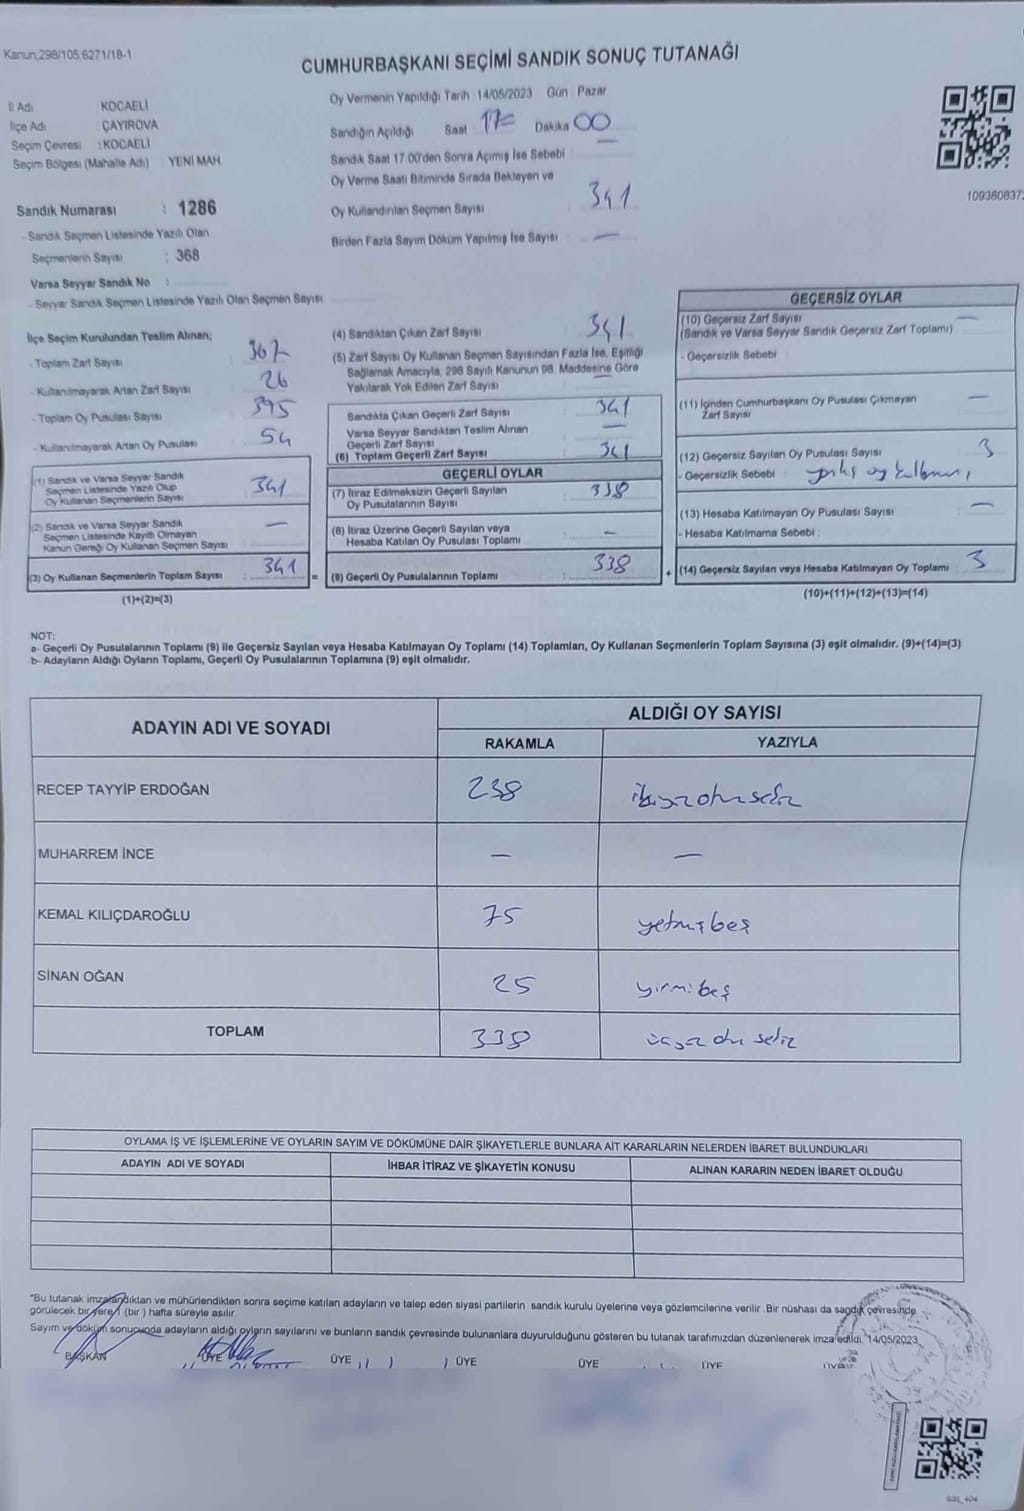 Kanun;298/105;6271/18-1
CUMHURBAŞKANI SEÇİMİ SANDIK SONUÇ TUTANAĞI
İl Adı KOCAELİ
İlçe Adı ÇAYIROVA
Seçim Çevresi : KOCAELİ
Seçim Bölgesi (Mahalle Adı) YENİ MAH.
Sandık Numarası : 1286
- Sandık Seçmen Listesinde Yazılı Olan
Seçmenlerin Sayısı : 368
Varsa Seyyar Sandık No :
- Seyyar Sandık Seçmen Listesinde Yazılı Olan Seçmen Sayısı
Oy Vermenin Yapıldığı Tarih : 14/05/2023 Gün : Pazar
Sandığın Açıldığı Saat 17 Dakika 00
Sandık Saat 17.00'den Sonra Açımış İse Sebebi : —
Oy Verme Saati Bitiminde Sırada Bekleyen ve
Oy Kullandırılan Seçmen Sayısı 341
Birden Fazla Sayım Döküm Yapılmış İse Sayısı : —
109380837
İlçe Seçim Kurulundan Teslim Alınan;
- Toplam Zarf Sayısı 367
- Kullanılmayarak Artan Zarf Sayısı 26
- Toplam Oy Pusulası Sayısı 395
- Kullanılmayarak Artan Oy Pusulası 54
(1) Sandık ve Varsa Seyyar Sandık
Seçmen Listesinde Yazılı Olup
Oy Kullanan Seçmenlerin Sayısı : 341
(2) Sandık ve Varsa Seyyar Sandık
Seçmen Listesinde Kayıtlı Olmayan
Kanun Gereği Oy Kullanan Seçmen Sayısı : —
(3) Oy Kullanan Seçmenlerin Toplam Sayısı : 341 =
(1)+(2)=(3)
(4) Sandıktan Çıkan Zarf Sayısı : 341
(5) Zarf Sayısı Oy Kullanan Seçmen Sayısından Fazla İse, Eşitliği
Sağlamak Amacıyla, 298 Sayılı Kanunun 98. Maddesine Göre
Yakılarak Yok Edilen Zarf Sayısı : —
Sandıkta Çıkan Geçerli Zarf Sayısı : 341
Varsa Seyyar Sandıktan Teslim Alınan
Geçerli Zarf Sayısı : —
(6) Toplam Geçerli Zarf Sayısı : 341
GEÇERLİ OYLAR
(7) İtiraz Edilmeksizin Geçerli Sayılan
Oy Pusulalarının Sayısı : 338
(8) İtiraz Üzerine Geçerli Sayılan veya
Hesaba Katılan Oy Pusulası Toplamı : —
(9) Geçerli Oy Pusulalarının Toplamı : 338 +
GEÇERSİZ OYLAR
(10) Geçersiz Zarf Sayısı —
(Sandık ve Varsa Seyyar Sandık Geçersiz Zarf Toplamı)
- Geçersizlik Sebebi :
(11) İçinden Cumhurbaşkanı Oy Pusulası Çıkmayan
Zarf Sayısı —
(12) Geçersiz Sayılan Oy Pusulası Sayısı 3
- Geçersizlik Sebebi :
(13) Hesaba Katılmayan Oy Pusulası Sayısı —
- Hesaba Katılmama Sebebi :
(14) Geçersiz Sayılan veya Hesaba Katılmayan Oy Toplamı 3
(10)+(11)+(12)+(13)=(14)
NOT:
a- Geçerli Oy Pusulalarının Toplamı (9) ile Geçersiz Sayılan veya Hesaba Katılmayan Oy Toplamı (14) Toplamları, Oy Kullanan Seçmenlerin Toplam Sayısına (3) eşit olmalıdır. (9)+(14)=(3)
b- Adayların Aldığı Oyların Toplamı, Geçerli Oy Pusulalarının Toplamına (9) eşit olmalıdır.
ADAYIN ADI VE SOYADI ALDIĞI OY SAYISI
RAKAMLA YAZIYLA
RECEP TAYYİP ERDOĞAN 238 ikiyüzotuzsekiz
MUHARREM İNCE — —
KEMAL KILIÇDAROĞLU 75 yetmişbeş
SİNAN OĞAN 25 yirmibeş
TOPLAM 338 üçyüzotuzsekiz
OYLAMA İŞ VE İŞLEMLERİNE VE OYLARIN SAYIM VE DÖKÜMÜNE DAİR ŞİKAYETLERLE BUNLARA AİT KARARLARIN NELERDEN İBARET BULUNDUKLARI
ADAYIN ADI VE SOYADI İHBAR İTİRAZ VE ŞİKAYETİN KONUSU ALINAN KARARIN NEDEN İBARET OLDUĞU
"Bu tutanak imzalandıktan ve mühürlendikten sonra seçime katılan adayların ve talep eden siyasi partilerin sandık kurulu üyelerine veya gözlemcilerine verilir. Bir nüshası da sandık çevresinde
görülecek bir yere 1 (bir ) hafta süreyle asılır.
Sayım ve döküm sonucunda adayların aldığı oyların sayılarını ve bunların sandık çevresinde bulunanlara duyurulduğunu gösteren bu tutanak tarafımızdan düzenlenerek imza edildi. 14/05/2023
BAŞKAN ÜYE ÜYE ÜYE ÜYE ÜYE ÜYE